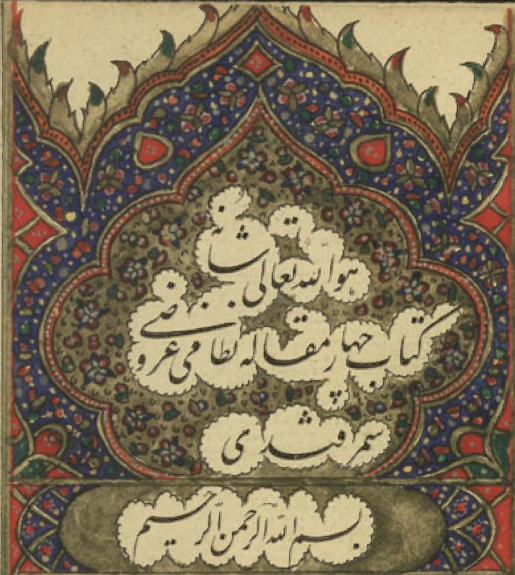 هو الله تعالی شانه
کتاب چهار مقاله نظامی عروضی
سمرقندی
بسم الله الرحمن الرحیم